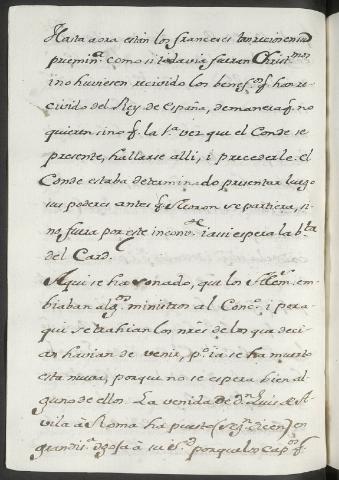 Hasta aora están los franceses tan recios en su
premin.ª como si todavia fueran Christ.mos
i no huviesen recivido los benef.os q. han re-
civido del Rey de España, de manera q. no
quieren sino q. la 1.ª vez que el Conde se
presente, hallarse alli, i precederle. el
Conde estaba determinado presentar luego
sus poderes antes q. se partiera, si
no fuera por este inconv.te i assi espera la
del Card.
Aqui se ha sonado, que los em-
biaban alg.os ministros al Conc.o i para
qui se trahian los nres de los que deci-
an havian de venir, p.o ia se ha muerto
esta nueva, porque no se espera bien al
guno de ellos. La venida de d.n Luis de A-
vila à Roma ha puesto (seg.n dicen) en
à su porque los q.